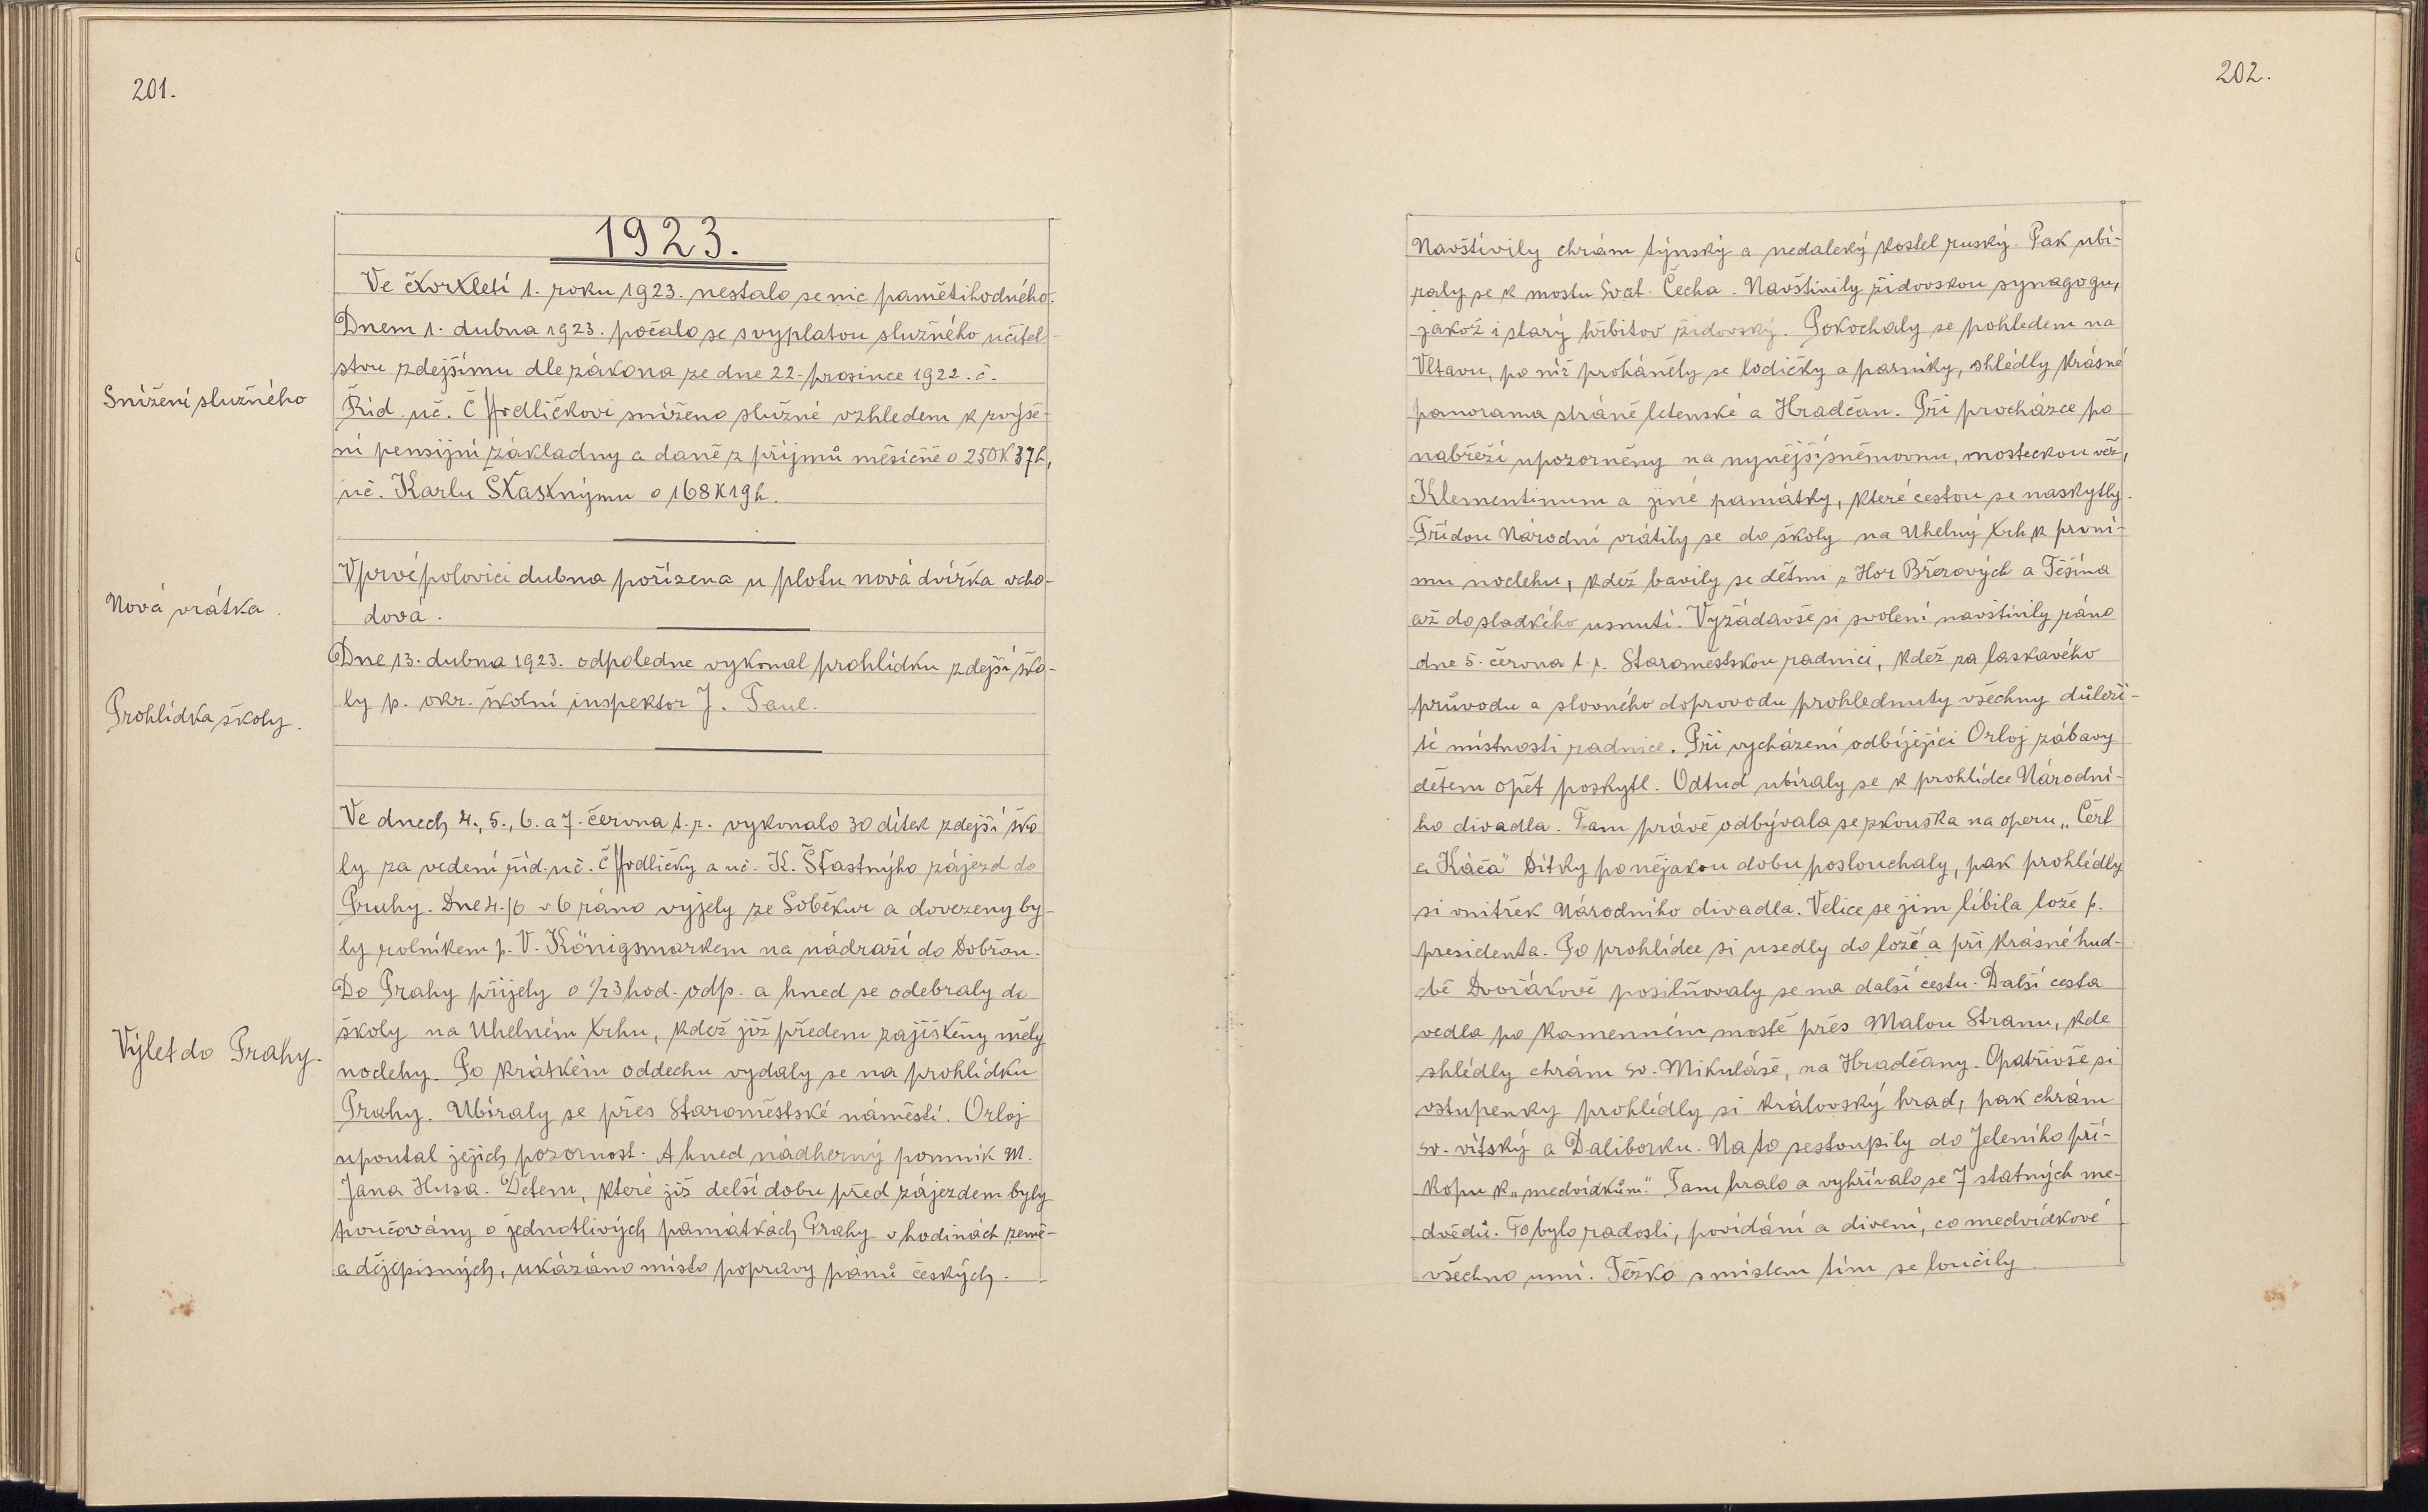 201.
1923.
Ve čtvrtletí 1. roku 1923. nestalo se nic pamětihodného.
Dnem 1. dubna 1923. počalo se s vyplatou služného učitel-
stvu zdejšímu dle zákona ze dne 22. prosince 1922. č.
Snížení služného
Říd. uč. Č. Hrdličkovi sníženo služné vzhledem k zvýše-
ní pensijní základny a daně z příjmů měsíčně o 250K37h,
uč. Karlu Šťastnýmu o 168K19h.
V prvé polovici dubna pořízena u plotu nová dvířka vcho-
Nová vrátka.
dová.
Dne 13. dubna 1923. odpoledne vykonal prohlídku zdejší ško-
Prohlídka školy.
ly p. okr. školní inspektor J. Paul.
Ve dnech 4., 5., 6. a 7. června t. r. vykonalo 30 dítek zdejší ško
ly za vedení říd. uč. Č. Hrdličky a uč. K. Šťastnýho zájezd do
Prahy. Dne 4./6 v 6 ráno vyjely ze Soběkur a dovezeny by-
ly rolníkem p. V. Königsmarkem na nádraží do Dobřan.
Do Prahy přijely o 1/23 hod. odp. a hned se odebraly do
školy na Uhelném trhu, kdež již předem zajištěny měly
Výlet do Prahy.
noclehy. Po krátkém oddechu vydaly se na prohlídku
Prahy. Ubíraly se přes Staroměstské náměstí. Orloj
upoutal jejich pozornost. A hned nádherný pomník M.
Jana Husa. Dětem, které již delší dobu před zájezdem byly
poučovány o jednotlivých památkách Prahy v hodinách země-
a dějepisných, ukázáno místo popravy pánů českých.
202.
Navštívily chrám týnský a nedaleký kostel ruský. Pak ubí-
raly se k mostu Svat. Čecha. Navštívily židovskou synagogu,
jakož i starý hřbitov židovský. Pokochaly se pohledem na
Vltavu, po níž proháněly se lodičky a parníky, shlédly krásné
panorama stráně letenské a Hradčan. Při procházce po
nabřeží upozorněny na nynější sněmovnu, mosteckou věž,
Klementinum a jiné památky, které cestou se naskytly.
Třídou Národní vrátily se do školy na Uhelný trh k první-
mu noclehu, kdež bavily se dětmi z Hor Březových a Těšína
až do sladkého usnutí. Vyžádavše si svolení navštívily ráno
dne 5. června t. r. Staroměstskou radnici, kdež za laskavého
průvodu a slovného doprovodu prohlednuty všechny důleži-
té místnosti radnice. Při vycházení odbíjející Orloj zábavy
dětem opět poskytl. Odtud ubíraly se k prohlídce Národní-
ho divadla. Tam právě odbývala se zkouška na operu „Čert
a Káča" Dítky po nějakou dobu poslouchaly, pak prohlédly
si vnitřek Národního divadla. Velice se jim líbila lože p.
presidenta. Po prohlídce si usedly do loží a při krásné hud-
bě Dvořákově posilňovaly se na další cestu. Další cesta
vedla po kamenném mostě přes Malou Stranu, kde
shlédly chrám sv. Mikuláše, na Hradčany. Opatřivše si
vstupenky prohlédly si královský hrad, pak chrám
sv. vítský a Daliborku. Na to sestoupily do Jeleního pří-
kopu k „medvídkům." Tam hrálo a vyhřívalo se 7 statných me-
dvědů. To bylo radosti, povídání a divení, co medvídkové
všechno umí. Těžko s místem tím se loučily.